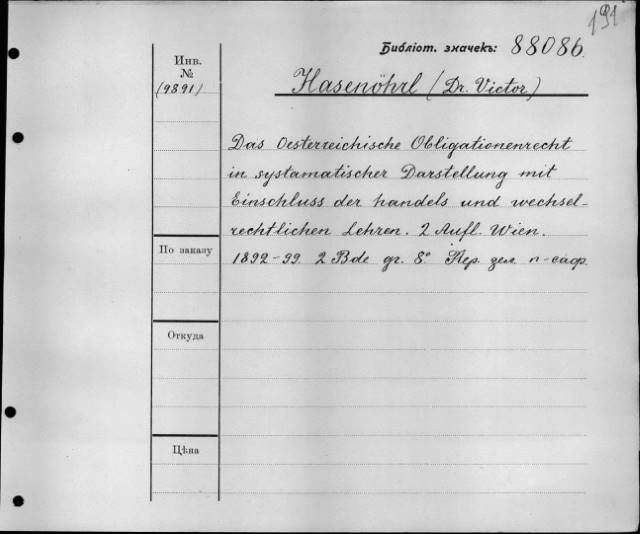 191
Библіот. значекъ: 88086.
Инв.
№
(9891)
Hasenöhrl (Dr. Victor)
Das Oesterreichische Obligationenrecht
in systamatischer Darstellung mit
Einschluss der handels und wechsel-
rechtlichen Lehren. 2 Aufl. Wien.
1892-99. 2 Bde gr. 8.° Пер. зел. п-саф.
По заказу
Откуда
Цѣна